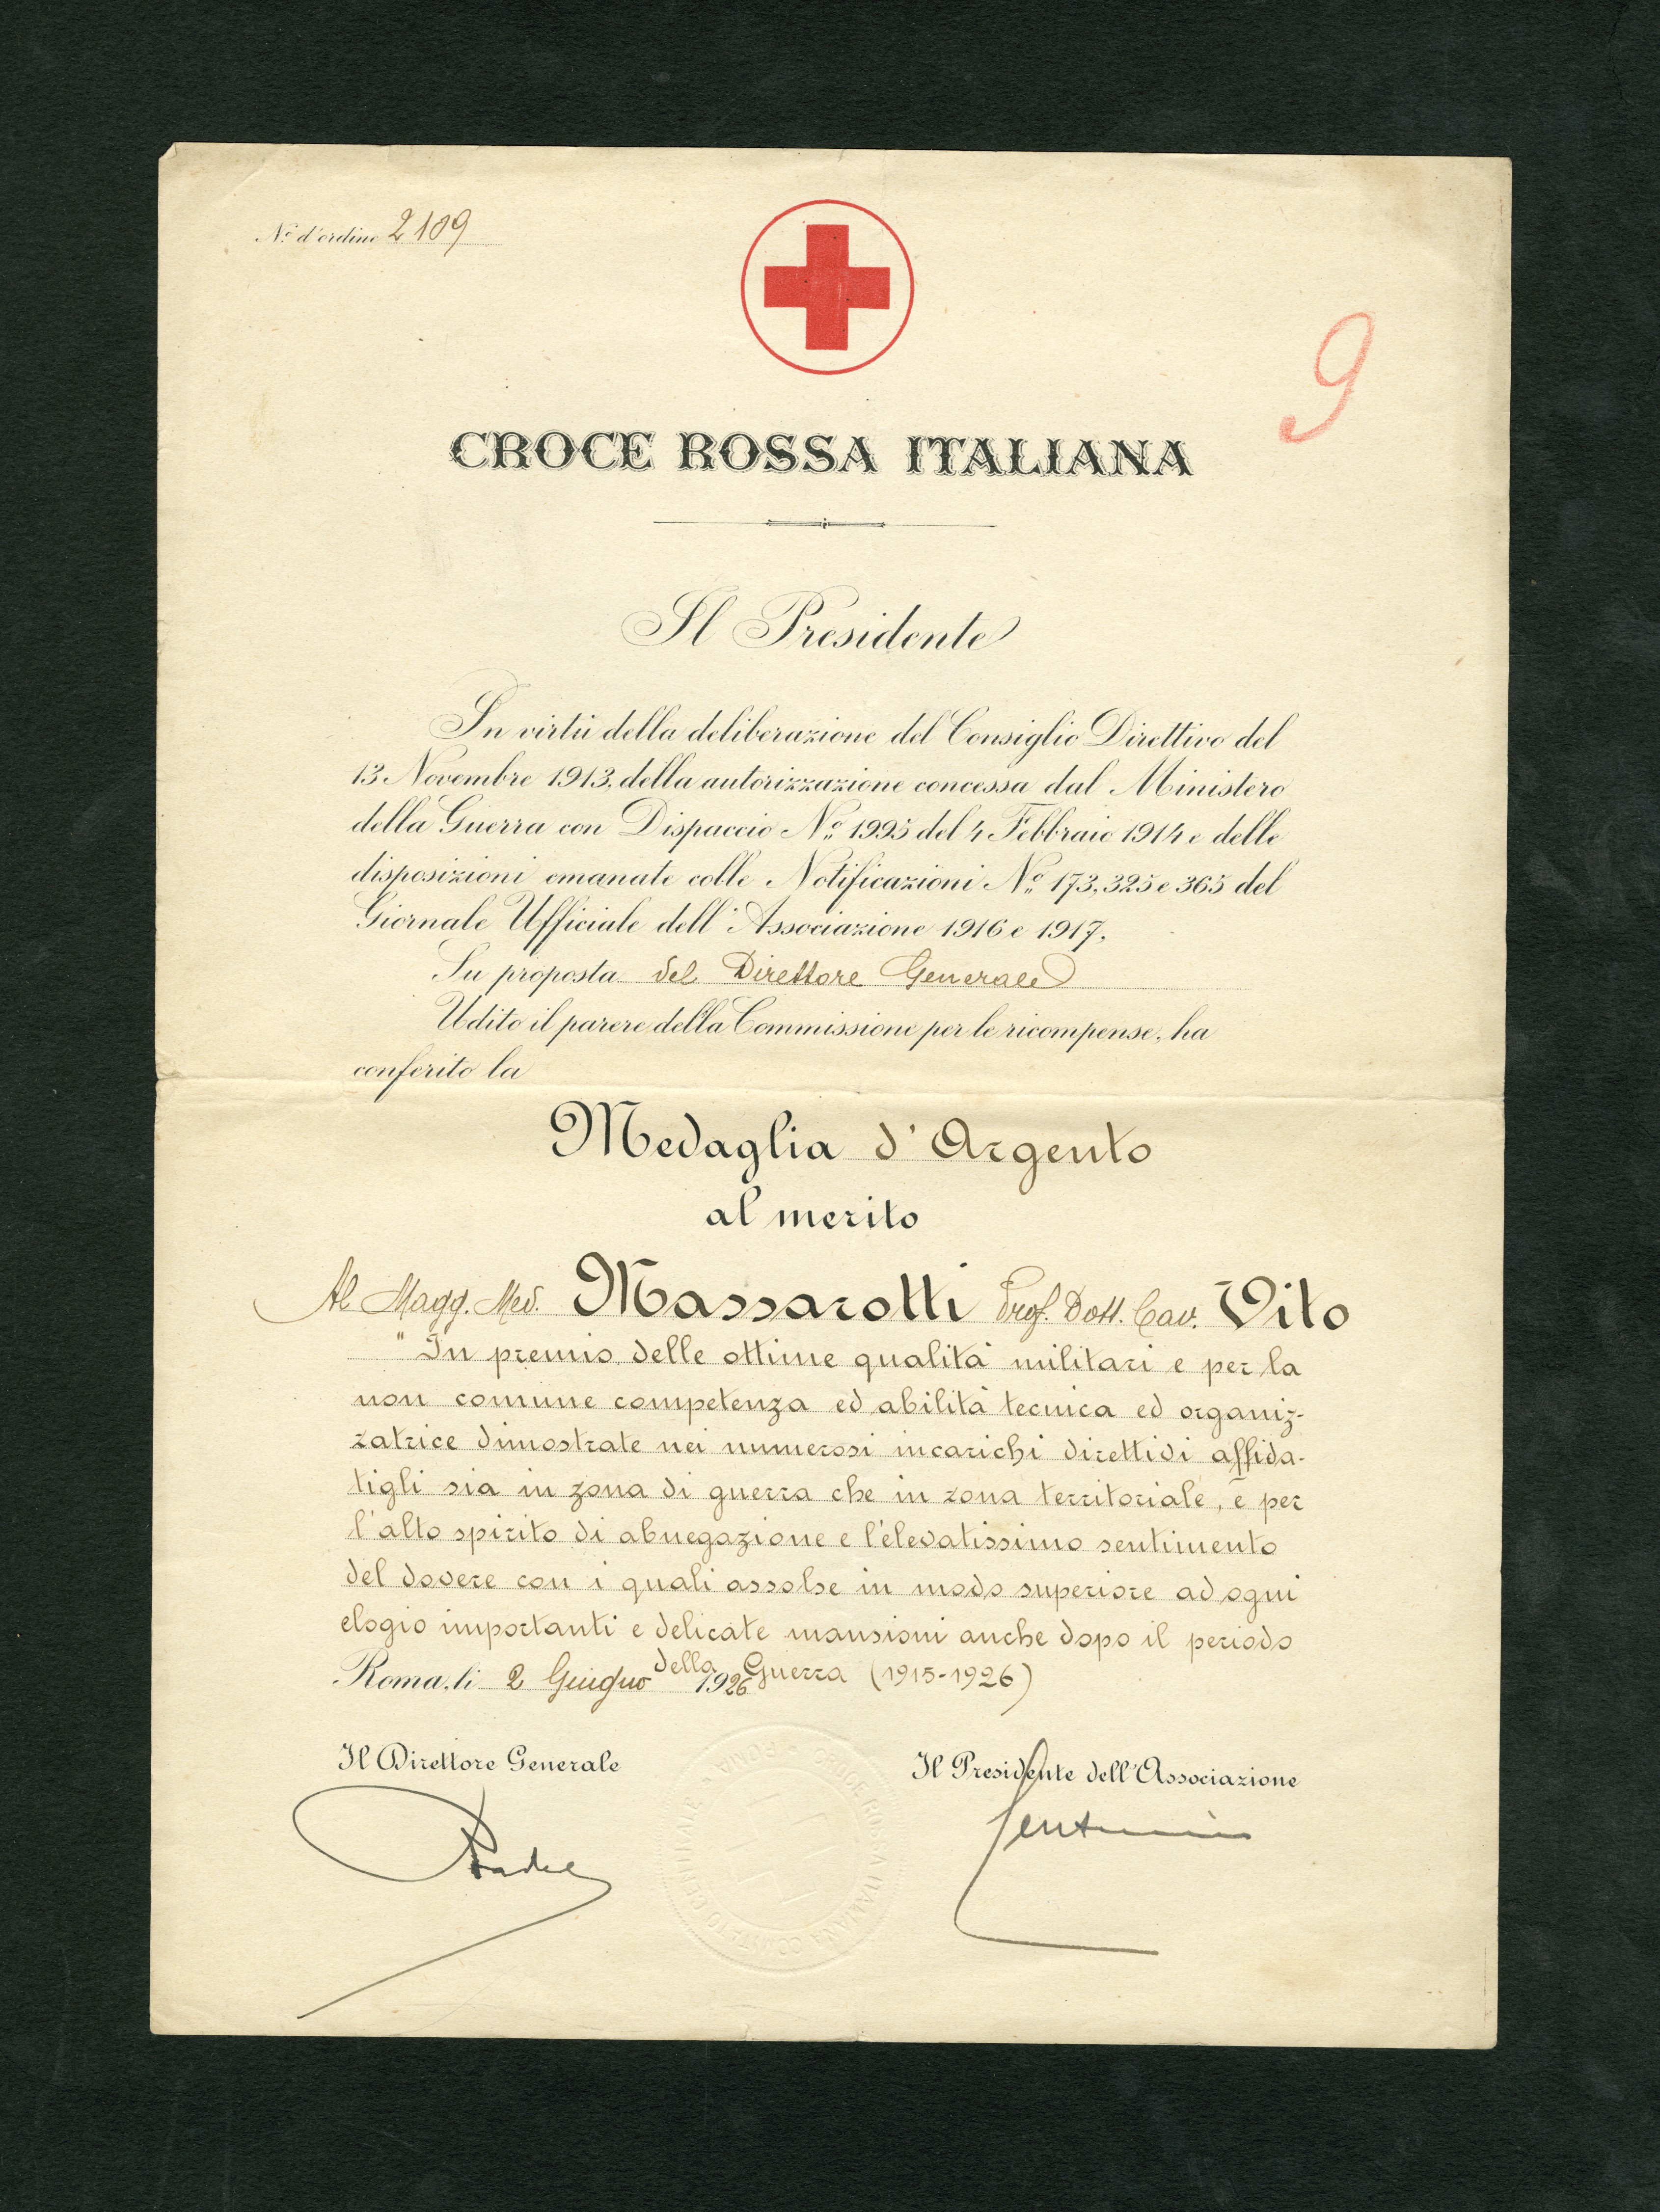 N.º d'ordine 2109
9
CROCE ROSSA ITALIANA
Il Presidente
In virtù della deliberazione del Consiglio Direttivo del
13 Novembre 1913, della autorizzazione concessa dal Ministero
della Guerra con Dispaccio N.º 1995 del 4 Febbraio 1914 e delle
disposizioni emanate colle Notificazioni N.º 173, 325 e 365 del
Giornale Ufficiale dell'Associazione 1916 e 1917,
Su proposta del Direttore Generale
Udito il parere della Commissione per le ricompense, ha
conferito la
Medaglia d'Argento
al merito
Al Magg. Med. Massarotti Prof. Dott. Cav. Vito
"In premio delle ottime qualità militari e per la
non comune competenza ed abilità tecnica ed organiz-
zatrice dimostrate nei numerosi incarichi direttivi affida-
tigli sia in zona di guerra che in zona territoriale, e per
l'alto spirito di abnegazione e l'elevatissimo sentimento
del dovere con i quali assolse in modo superiore ad ogni
elogio importanti e delicate mansioni anche dopo il periodo
della Guerra (1915-1926)
Roma, li 2 Giugno 1926
Il Direttore Generale
Il Presidente dell'Associazione
CROCE ROSSA ITALIANA COMITATO CENTRALE ROMA